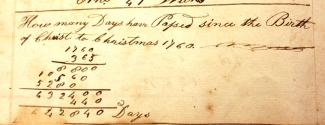 How many Days have Passed since the Birth
of Christ to Christmas 1760
1760
365
8800
10560
5280
642400
440
642840 Days